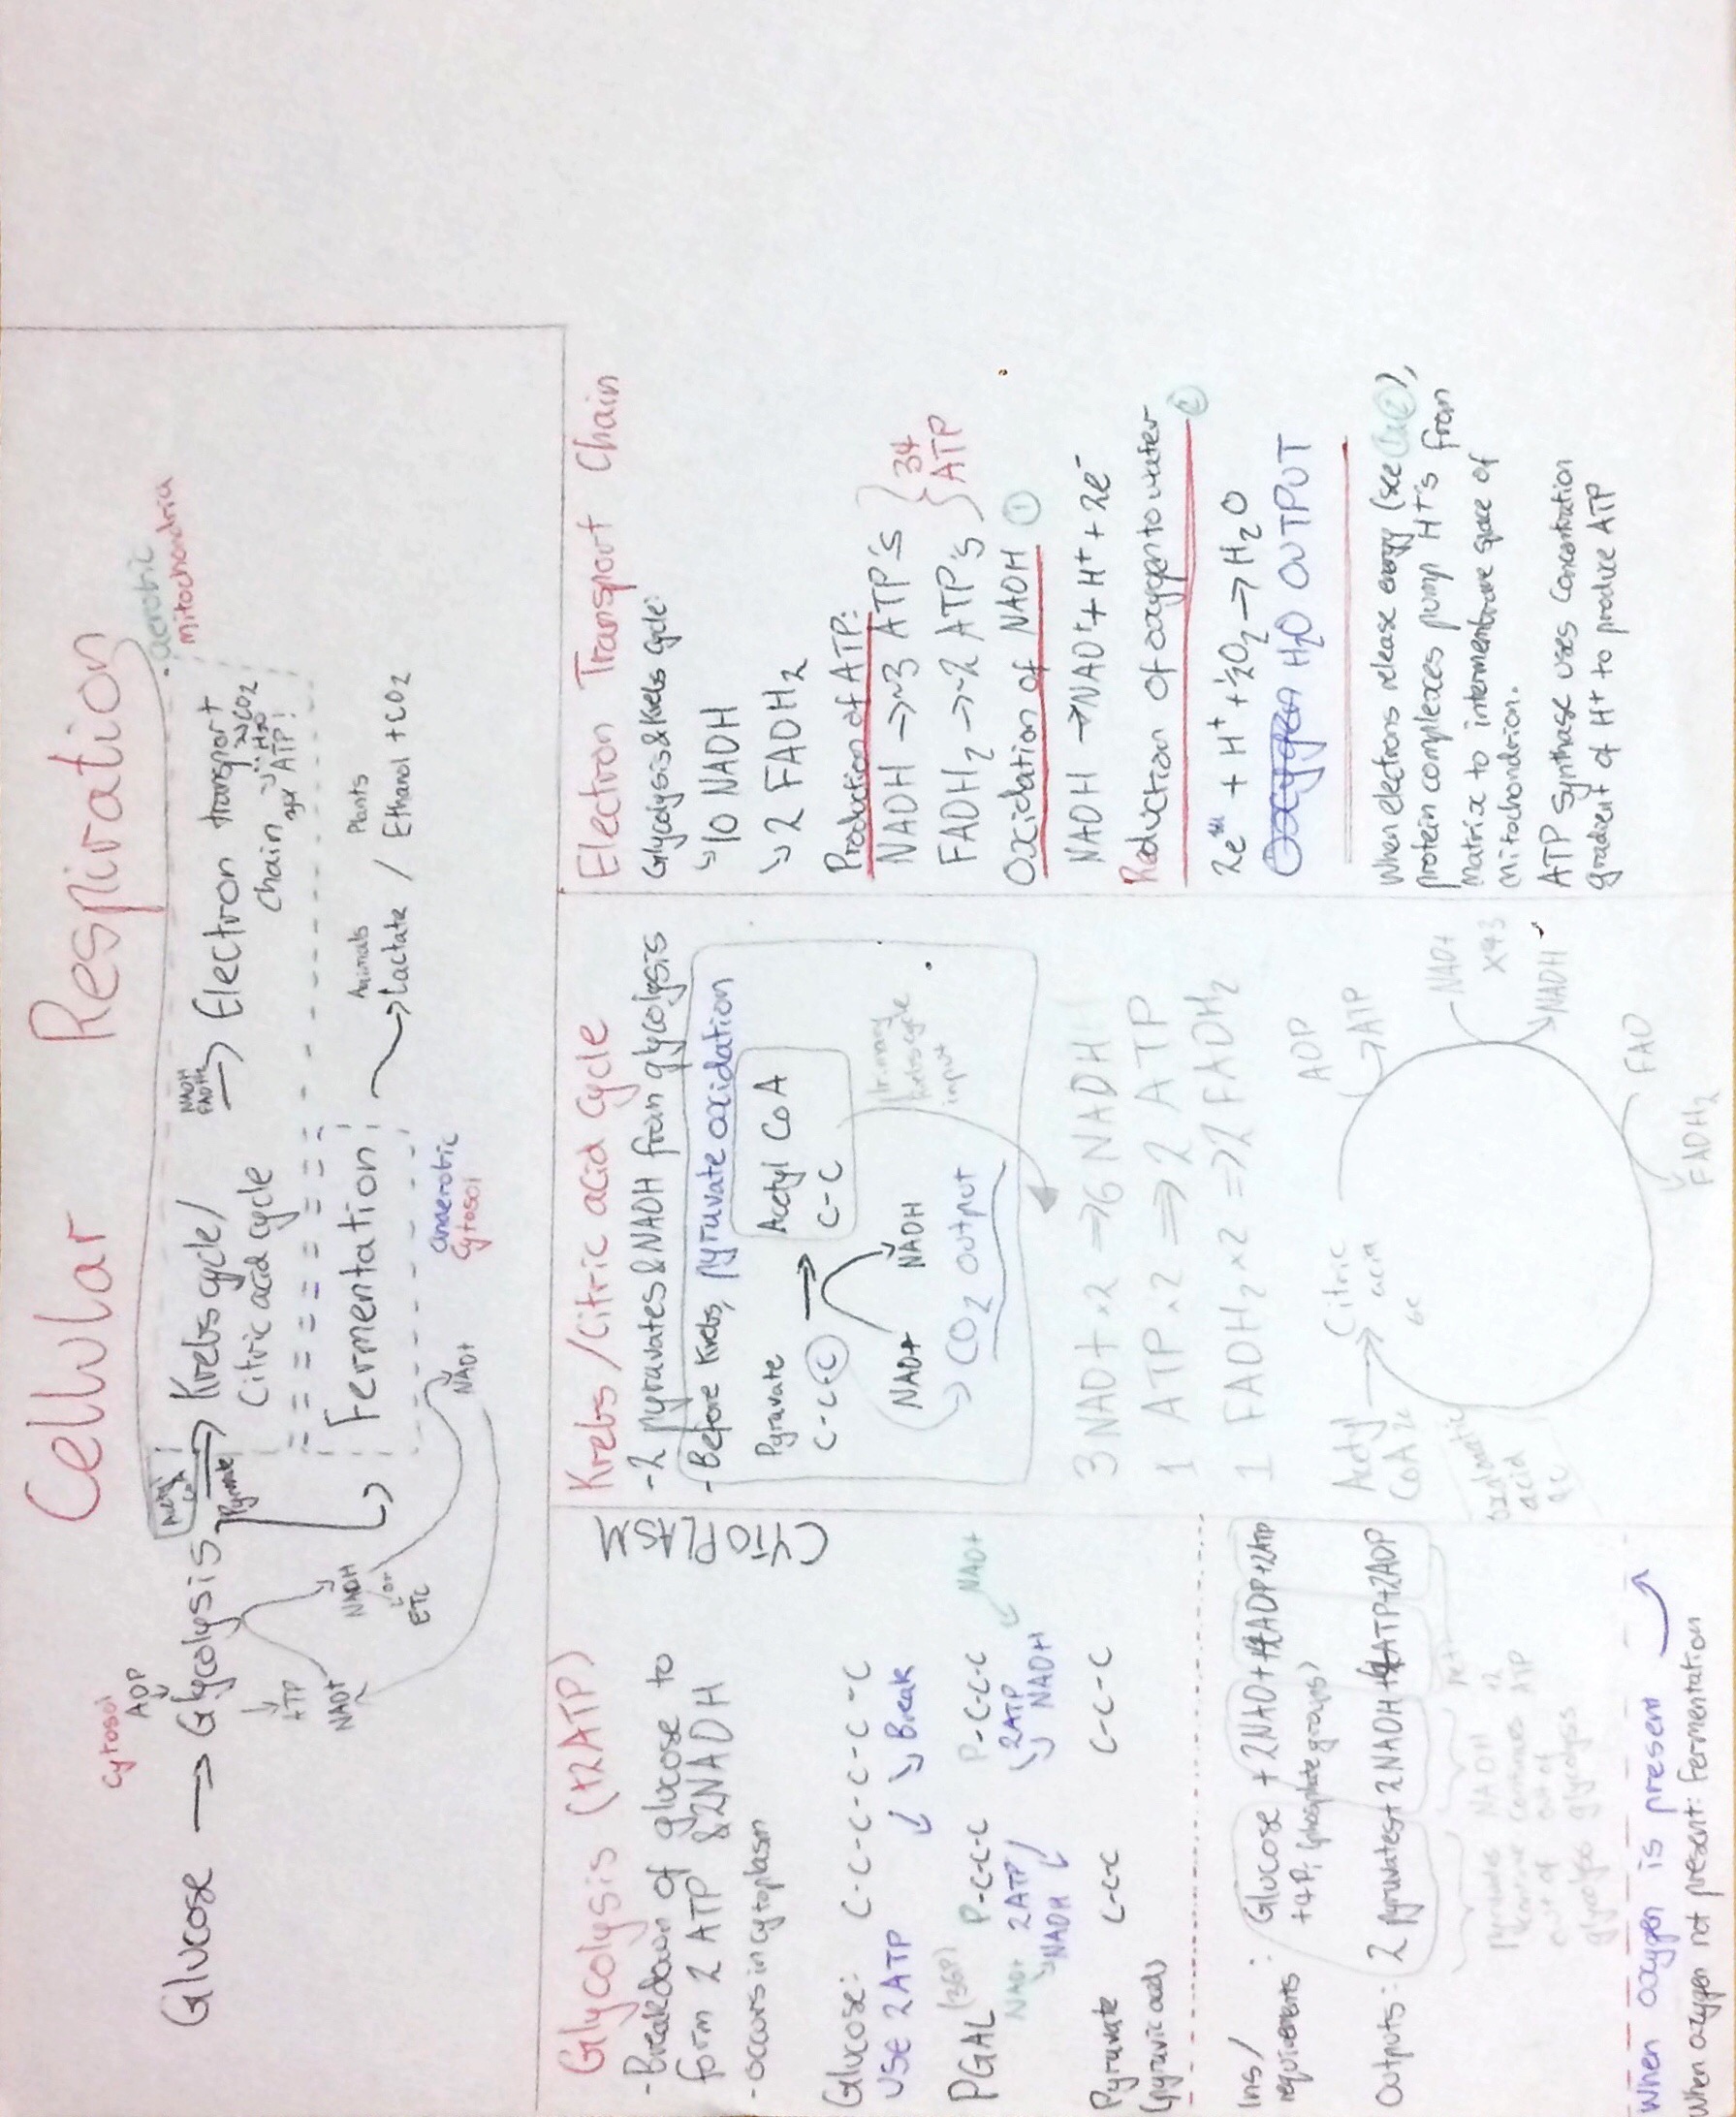 Cellular Respiration
Cytosol
ADP
Glucose → Glycolysis
ATP
NAD+
NADH
or
ETC
NAD+
Acetyl
CoA
Pyruvate
Krebs cycle/
Citric acid cycle
NADH
FADH2
Electron transport
Chain
H2O
ATP!
aerobic
mitochondria
Fermentation
anaerobic
Cytosol
Animals
Plants
Lactate / Ethanol + CO2
Glycolysis (+2ATP)
-Breakdown of glucose to
form 2 ATP & 2NADH
-occurs in cytoplasm
CYTOPLASM
Glucose: C-C-C-C-C-C
USE 2ATP Break
PGAL (3GP) P-C-C-C P-C-C-C
NAD+ 2ATP 2ATP NAD+
NADH NADH
Pyruvate C-C-C C-C-C
(pyruvic acid)
Ins/
requirements: Glucose + 2NAD+ + 4ADP + 2ATP
+4Pi (phosphate groups)
Outputs: 2 pyruvates + 2NADH + 4ATP + 2ADP
Net
Pyruvates NADH +2
continue continues ATP
out of out of
glycolysis glycolysis
When oxygen is present
When oxygen not present: Fermentation
Krebs/Citric acid cycle
-2 pyruvates & NADH from glycolysis
-Before Krebs, pyruvate oxidation
Pyruvate Acetyl CoA
C-C-C → C-C
NAD+ NADH
CO2 output
primary
krebs cycle
input
3 NAD+ ×2 → 6 NADH
1 ATP ×2 ⇒ 2 ATP
1 FADH2 ×2 ⇒ 2 FADH2
Acetyl Citric
CoA 2c acid
6c
Oxaloacetic
acid
4c
ADP
ATP
NAD+
×3
NADH
FAD
FADH2
Electron Transport Chain
Glycolysis & Krebs cycle:
↳ 10 NADH
↳ 2 FADH2
Production of ATP:
NADH → ~3 ATP's
FADH2 → ~2 ATP's
34
ATP
Oxidation of NADH ①
NADH → NAD+ + H+ + 2e-
Reduction of oxygen to water ②
2e- + H+ + ½O2 → H2O
H2O OUTPUT
When electrons release energy (see ②),
protein complexes pump H+'s from
Matrix to intermembrane space of
mitochondrion.
ATP Synthase uses concentration
gradient of H+ to produce ATP